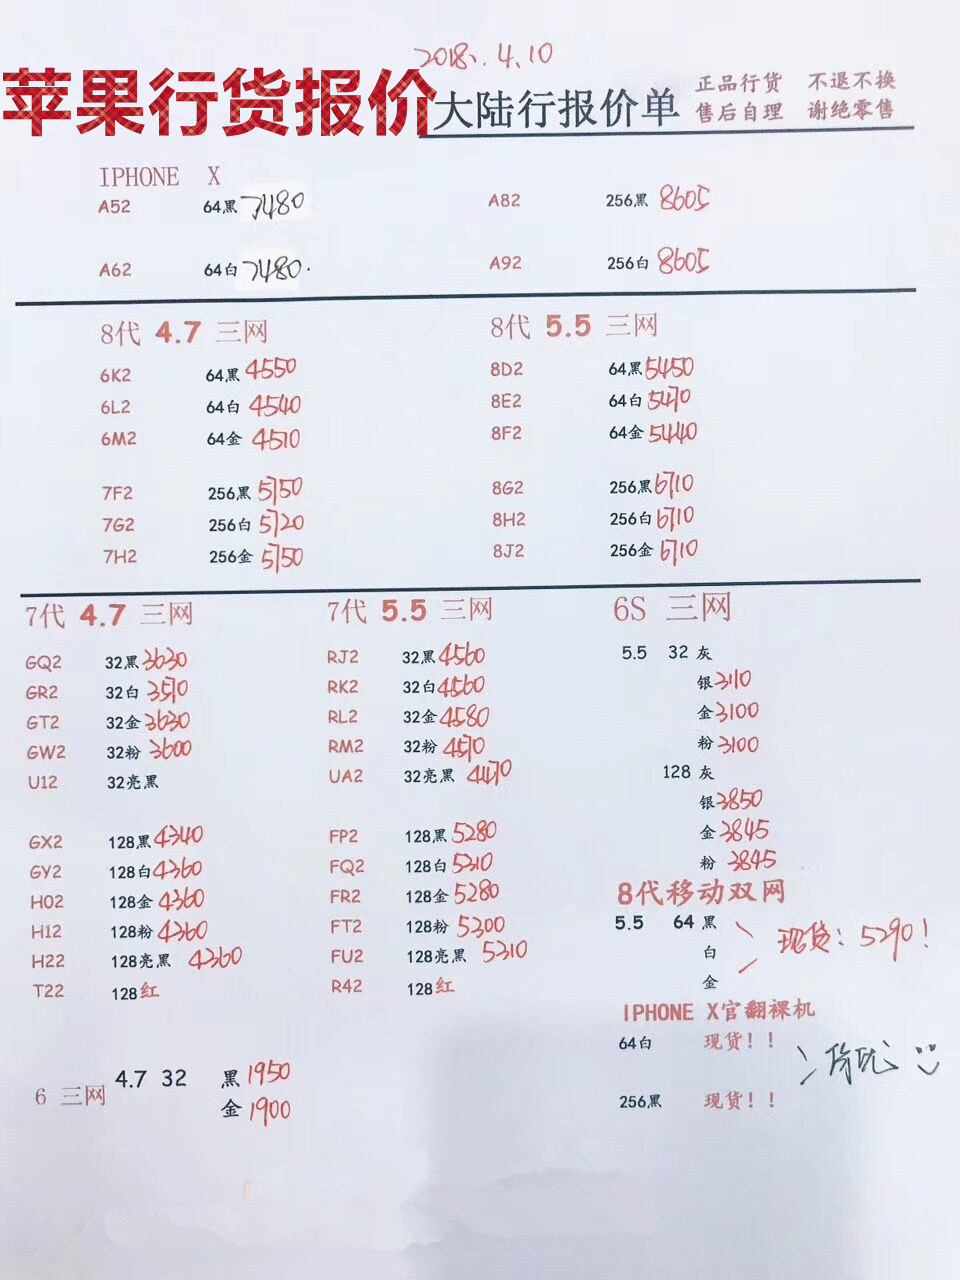 2018.4.10
苹果行货报价
大陆行报价单
正品行货 不退不换
售后自理 谢绝零售
IPHONE X
A52 64黑 7480 A82 256黑 8605
A62 64白 7480. A92 256白 8605
8代 4.7 三网 8代 5.5 三网
6K2 64黑 4550 8D2 64黑 5450
6L2 64白 4540 8E2 64白 5470
6M2 64金 4510 8F2 64金 5440
7F2 256黑 5750 8G2 256黑 6710
7G2 256白 5720 8H2 256白 6710
7H2 256金 5750 8J2 256金 6710
7代 4.7 三网
GQ2 32黑 3630
GR2 32白 3570
GT2 32金 3630
GW2 32粉 3600
U12 32亮黑
GX2 128黑 4340
GY2 128白 4360
H02 128金 4360
H12 128粉 4360
H22 128亮黑 4360
T22 128红
7代 5.5 三网
RJ2 32黑 4560
RK2 32白 4560
RL2 32金 4580
RM2 32粉 4570
UA2 32亮黑 4470
FP2 128黑 5280
FQ2 128白 5310
FR2 128金 5280
FT2 128粉 5300
FU2 128亮黑 5310
R42 128红
6S 三网
5.5 32 灰
银 3110
金 3100
粉 3100
128 灰
银 3850
金 3845
粉 3845
8代移动双网
5.5 64 黑
白 现货：5290！
金
IPHONE X官翻裸机
64白 现货！！
256黑 现货！！
6 三网 4.7 32 黑 1950
金 1900